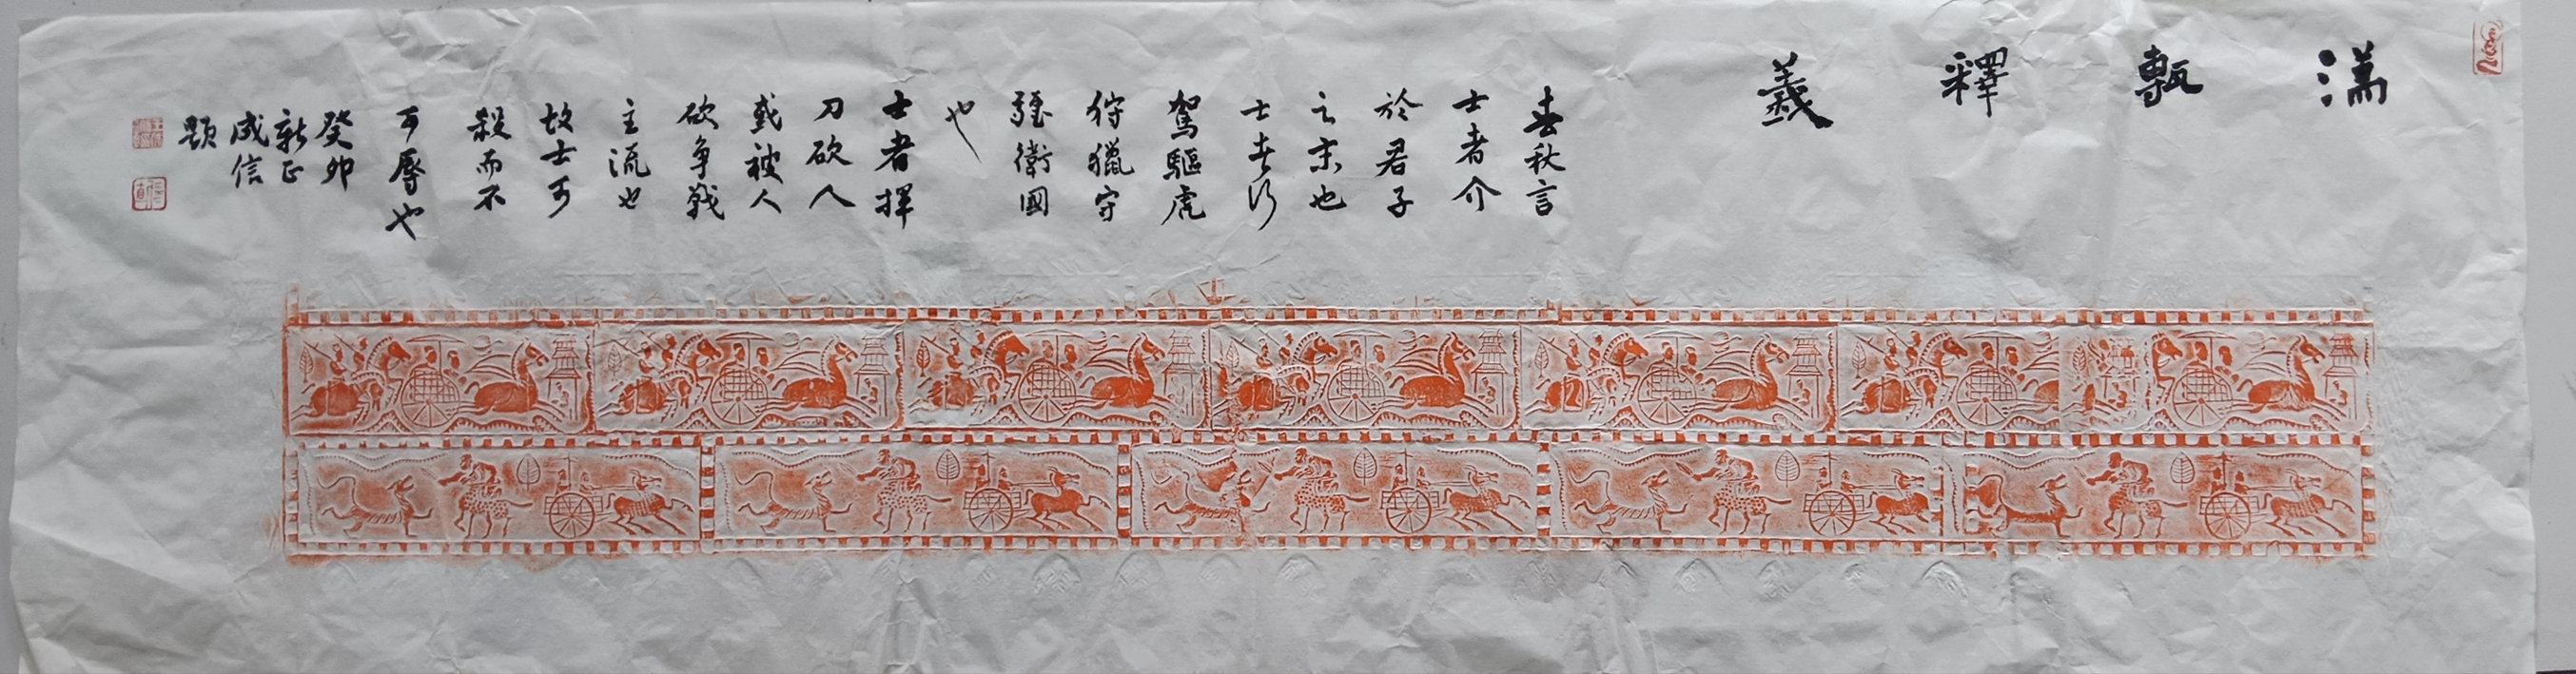 漢甎釋義
春秋言
士者介
於君子
之末也
士者行
駕驅虎
狩獵守
疆衛國
也
士者揮
刀砍人
或被人
砍争戰
主流也
故士可
殺而不
可辱也
癸卯
新正
成信
題